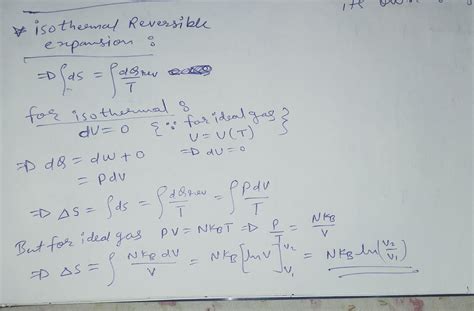 * isothermal Reversible
expansion :
⇒ ∫dS = ∫ dQrev / T
for isothermal :
dU = 0 { ∵ for ideal gas
U = U(T) }
⇒ dQ = dW + 0 ⇒ dU = 0
= PdV
⇒ ΔS = ∫ds = ∫ dQrev / T = ∫ PdV / T
But for ideal gas PV = NKBT ⇒ P/T = NKB/V
⇒ ΔS = ∫ NKB dV / V = NKB [lnV]V1^V2 = NKB ln(V2/V1)